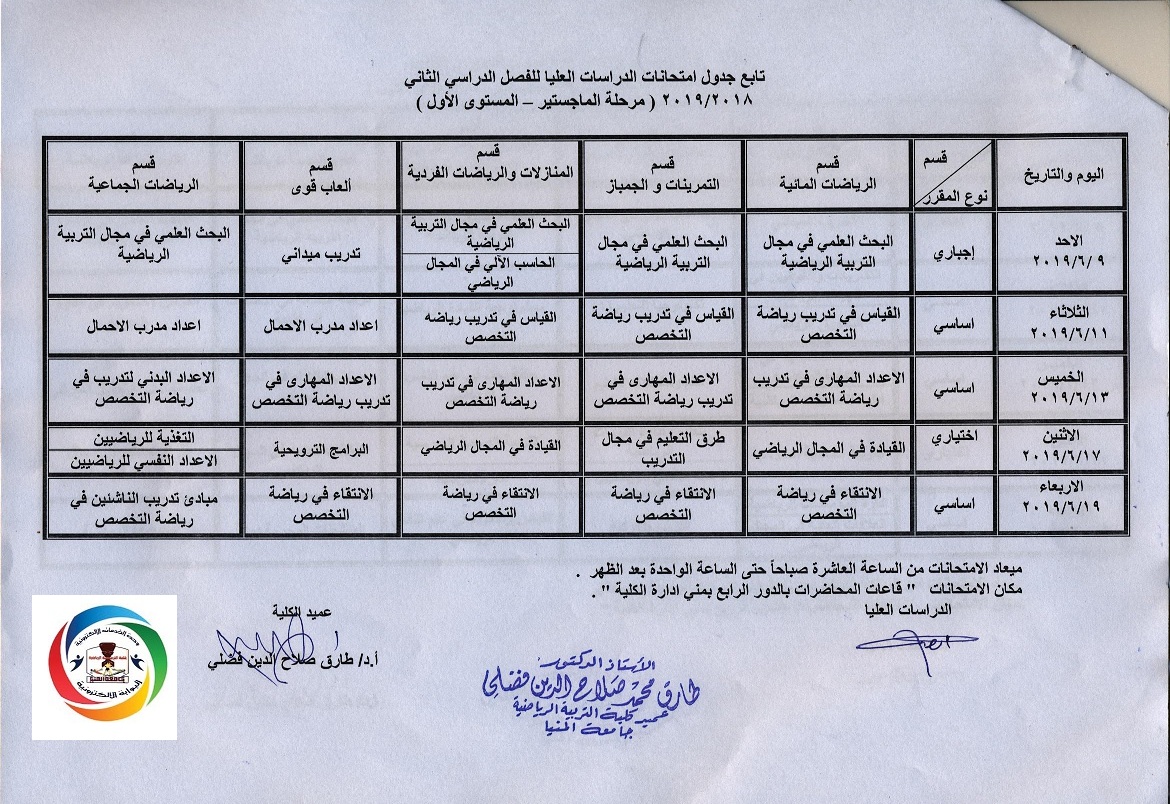 تابع جدول امتحانات الدراسات العليا للفصل الدراسي الثاني
٢٠١٩/٢٠١٨ ( مرحلة الماجستير – المستوى الأول )
اليوم والتاريخ
قسم
نوع المقرر
قسم
الرياضات المائية
قسم
التمرينات و الجمباز
قسم
المنازلات والرياضات الفردية
قسم
ألعاب قوى
قسم
الرياضات الجماعية
الاحد
٢٠١٩/٦/ ٩
إجباري
البحث العلمي في مجال
التربية الرياضية
البحث العلمي في مجال
التربية الرياضية
البحث العلمي في مجال التربية
الرياضية
الحاسب الآلي في المجال
الرياضي
تدريب ميداني
البحث العلمي في مجال التربية
الرياضية
الثلاثاء
٢٠١٩/٦/١١
اساسي
القياس في تدريب رياضة
التخصص
القياس في تدريب رياضة
التخصص
القياس في تدريب رياضه
التخصص
اعداد مدرب الاحمال
اعداد مدرب الاحمال
الخميس
٢٠١٩/٦/١٣
اساسي
الاعداد المهارى في تدريب
رياضة التخصص
الاعداد المهارى في
تدريب رياضة التخصص
الاعداد المهارى في تدريب
رياضة التخصص
الاعداد المهارى في
تدريب رياضة التخصص
الاعداد البدني لتدريب في
رياضة التخصص
الاثنين
٢٠١٩/٦/١٧
اختياري
القيادة في المجال الرياضي
طرق التعليم في مجال
التدريب
القيادة في المجال الرياضي
البرامج الترويحية
التغذية للرياضيين
الاعداد النفسي للرياضيين
الاربعاء
٢٠١٩/٦/١٩
اساسي
الانتقاء في رياضة
التخصص
الانتقاء في رياضة
التخصص
الانتقاء في رياضة
التخصص
الانتقاء في رياضة
التخصص
مبادئ تدريب الناشئين في
رياضة التخصص
ميعاد الامتحانات من الساعة العاشرة صباحاً حتى الساعة الواحدة بعد الظهر .
مكان الامتحانات " قاعات المحاضرات بالدور الرابع بمني ادارة الكلية " .
الدراسات العليا
عميد الكلية
أ.د/ طارق صلاح الدين فضلي
الأستاذ الدكتور
طارق محمد صلاح الدين فضلي
عميد كلية التربية الرياضية
جامعة المنيا
وحدة الخدمات الالكترونية
البوابة الالكترونية